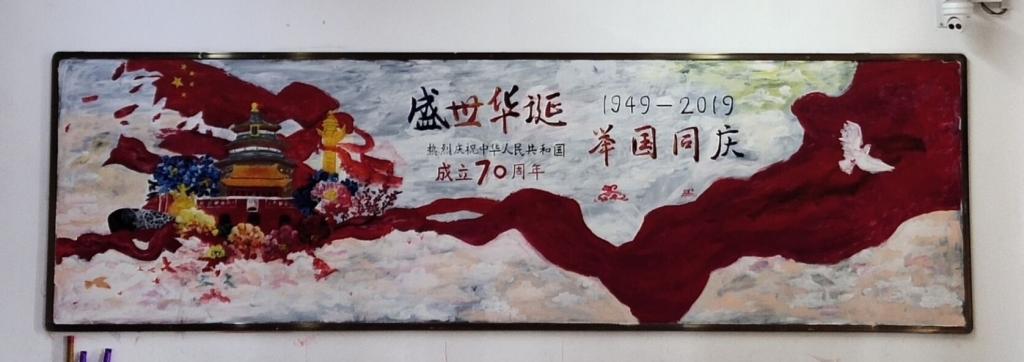 盛世华诞
热烈庆祝中华人民共和国
成立70周年
1949-2019
举国同庆